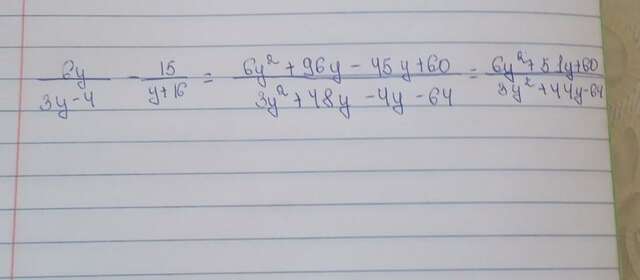 6y/(3y-4) - 15/(y+16) = (6y² + 96y - 45y + 60)/(3y² + 48y - 4y - 64) = (6y² + 51y + 60)/(3y² + 44y - 64)